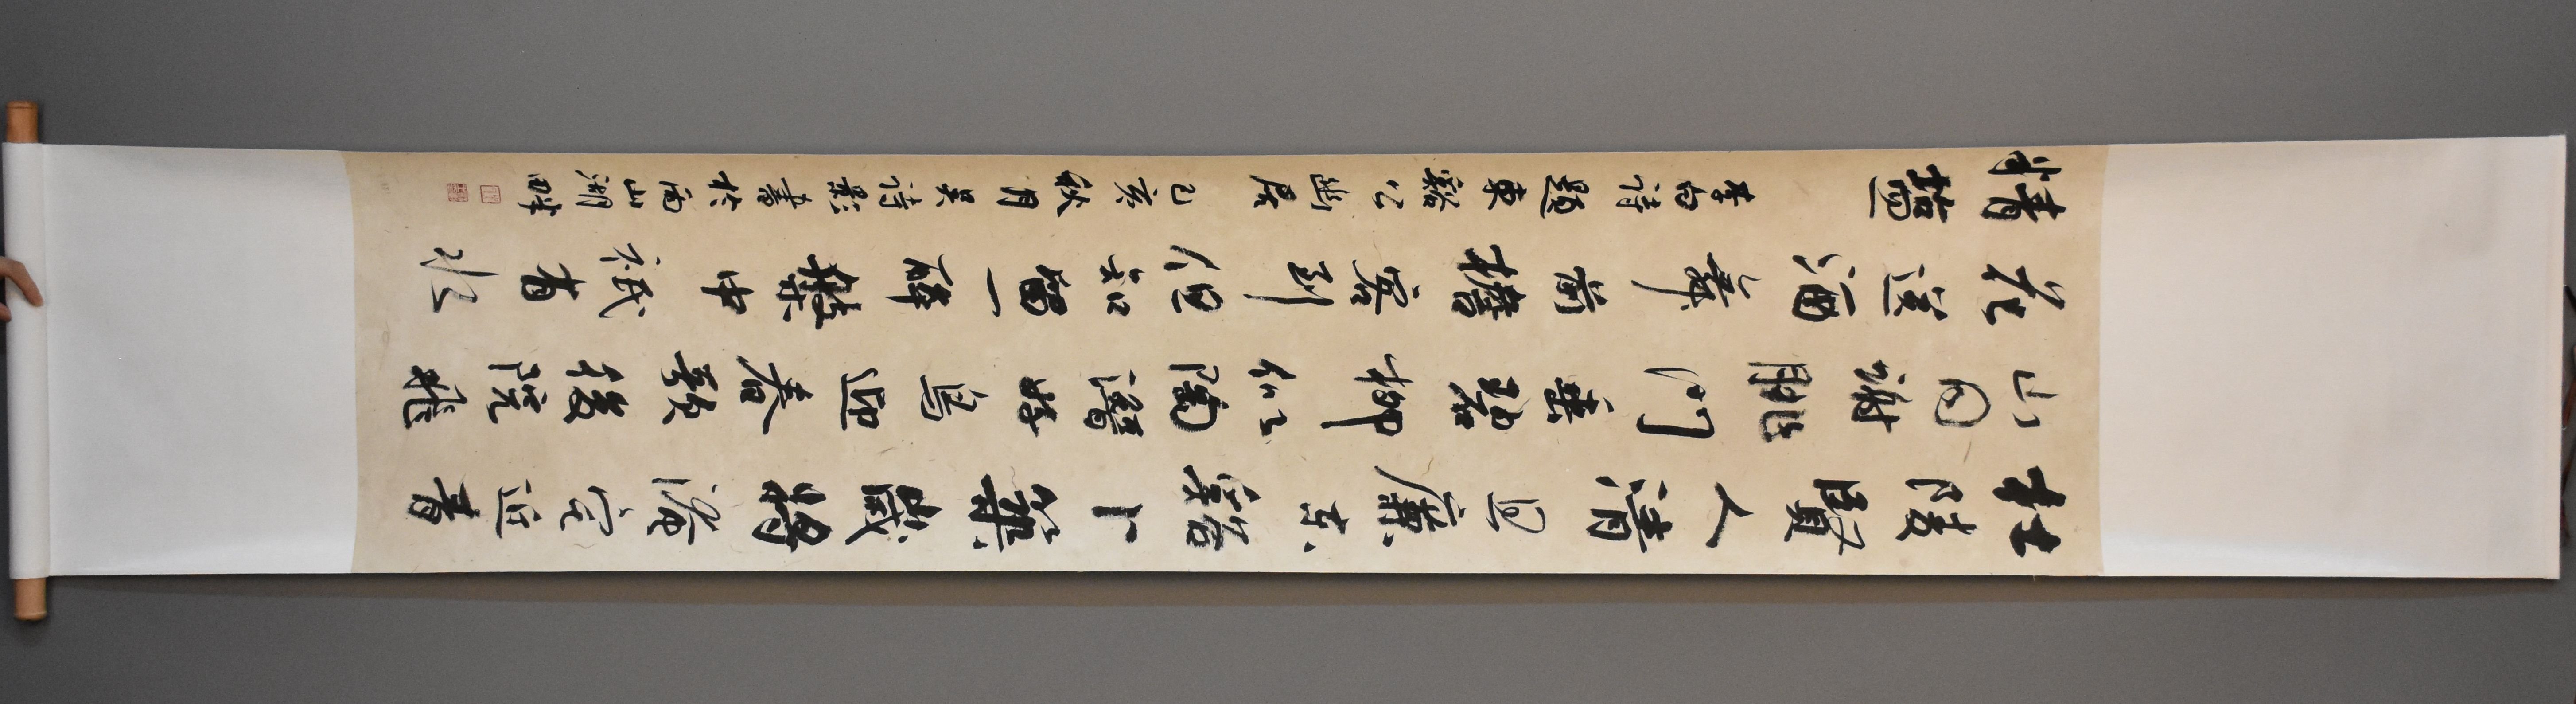 杜陵賢人清且廉東谿卜築歲將淹宅近青
山同謝朓門垂碧柳似陶潛好鳥迎春歌後院飛
花送酒舞前簷客到但知留一醉盤中祇有水
精鹽 李白詩題東谿公幽居 己亥秋月吳詩書於山湖畔